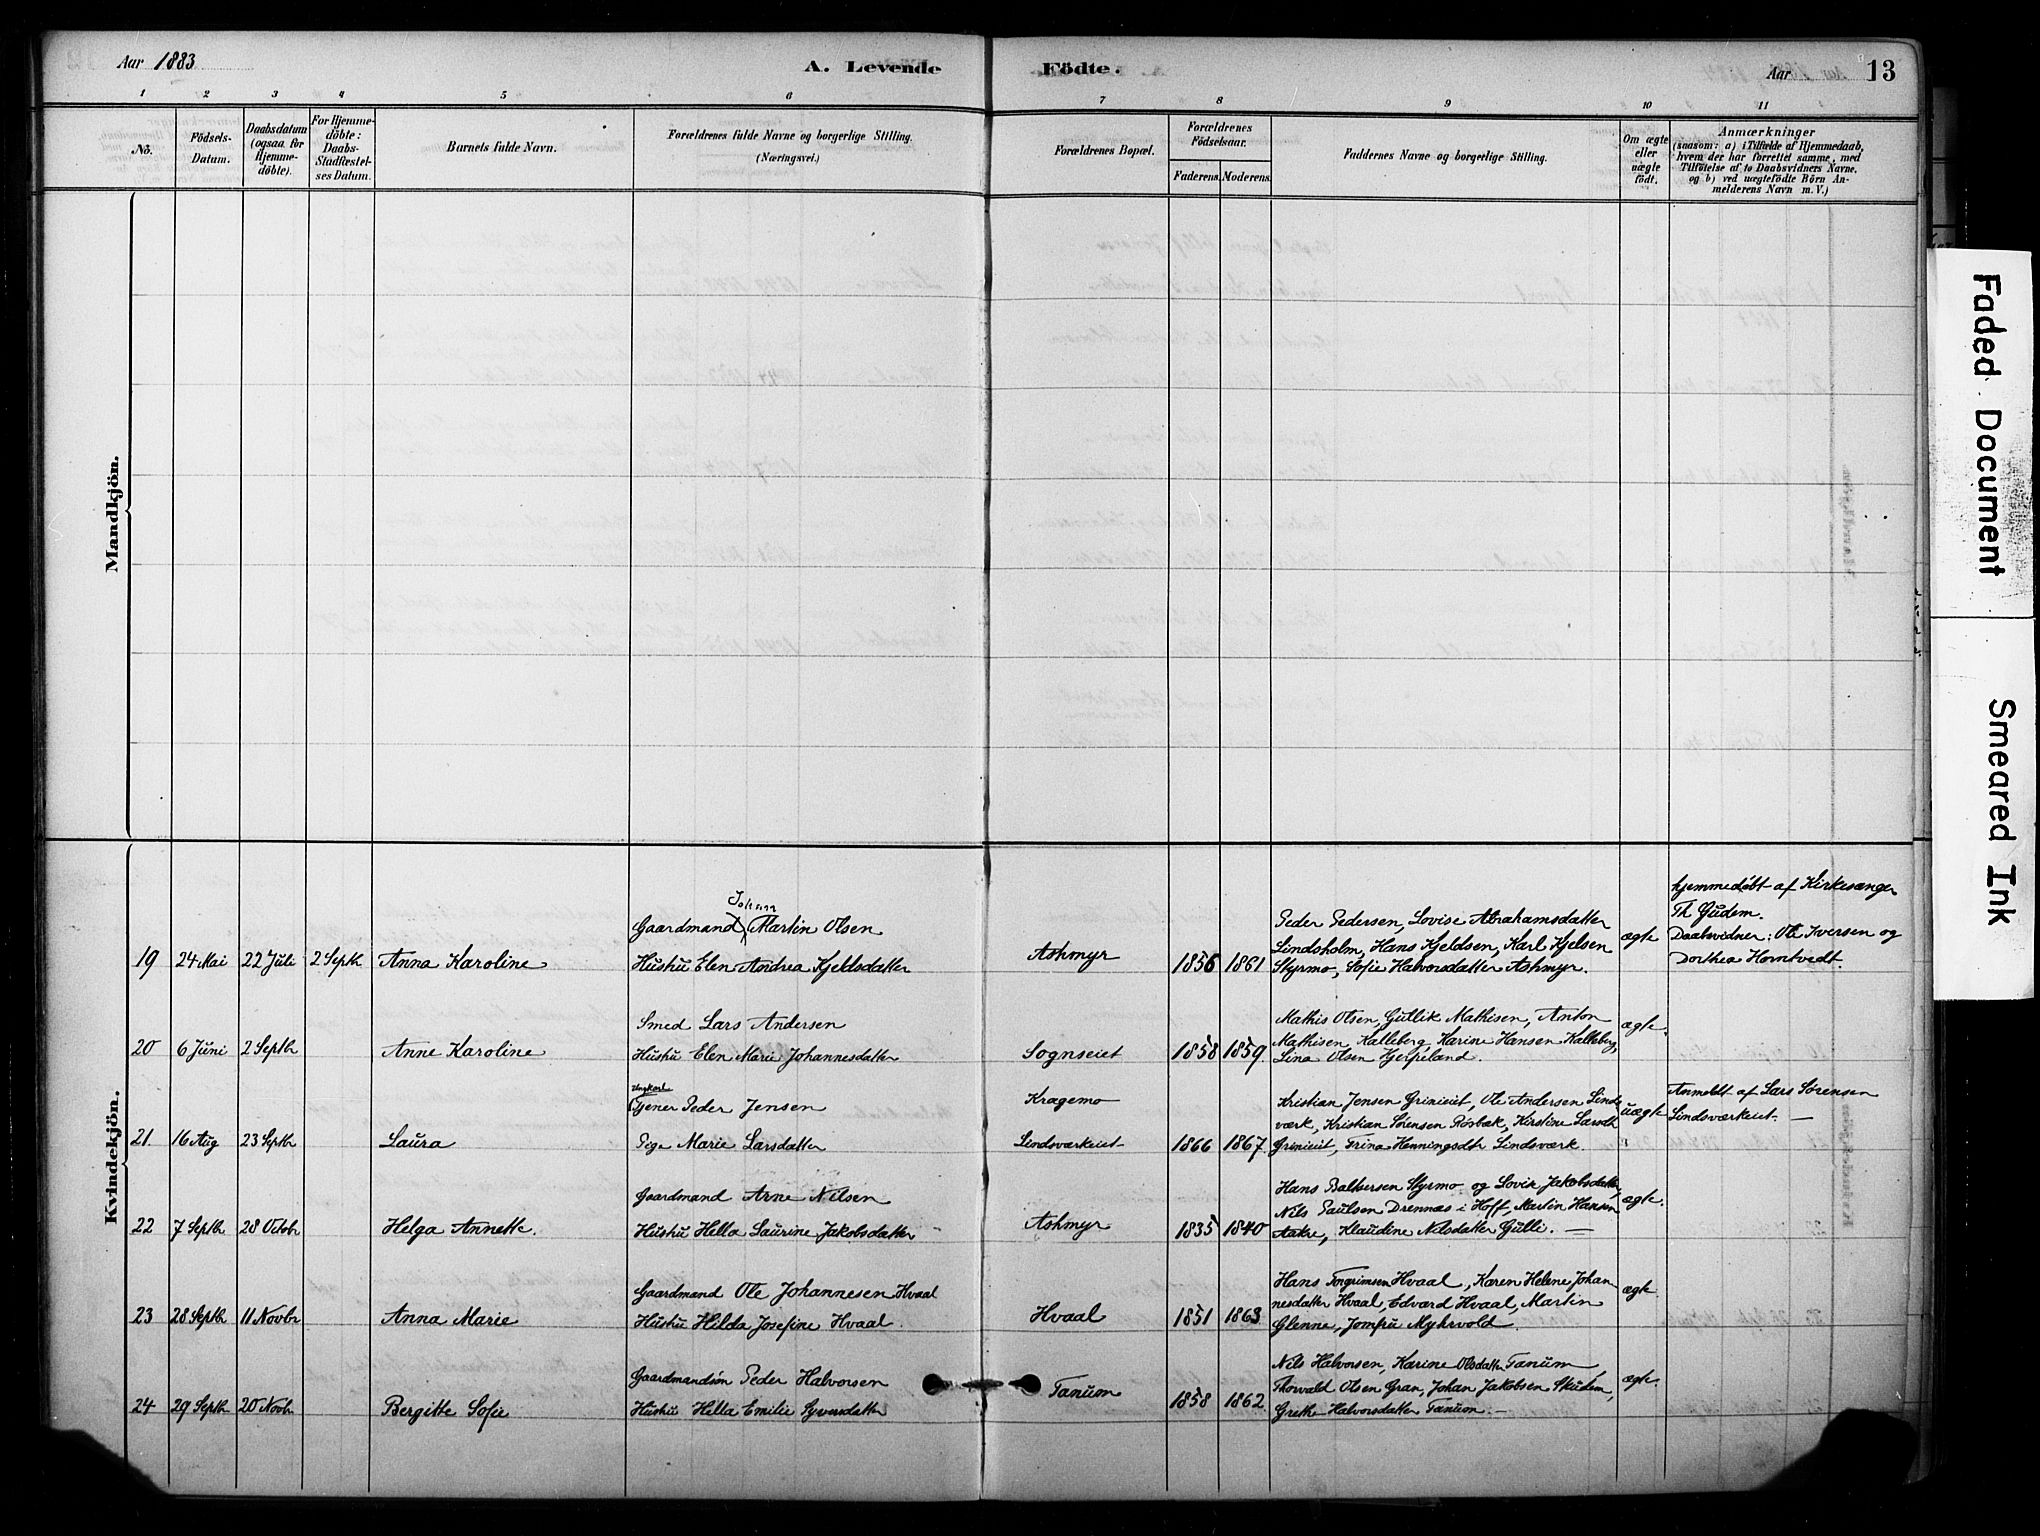 Aar 1883
A. Levende Födte.
Aar
13
1 2 3 4 5 6 7 8 9 10 11
No.
Födsels-Datum.
Daabsdatum (ogsaa for Hjemme-döbte).
For Hjemme-döbte: Daabs-Stadfæstel-ses Datum.
Barnets fulde Navn.
Forældrenes fulde Navne og borgerlige Stilling. (Næringsvei.)
Forældrenes Bopæl.
Forældrenes Födselsaar.
Faderens. Moderens.
Faddernes Navne og borgerlige Stilling.
Om ægte eller uægte födt.
Anmærkninger
(saasom: a) i Tilfælde af Hjemmedaab,
hvem der har forrettet samme, med
Tilföielse af to Daabsvidners Navne,
og b) ved uægtefödte Börn An-
melderens Navn m. V.)
Mandkjön.
Kvindekjön.
19 24 Mai 22 Juli 2 Septb Anna Karoline
Johann
Gaardmand Martin Olsen
Hustru Elen Andrea Kjeldsdatter
Askmyr 1856 1861
Peder Pedersen, Lovise Abrahamsdatter
Lindsholm, Hans Kjeldsen, Karl Kjelsen
Styrmo, Sofie Halvorsdatter Askmyr.
ægte
hjemmedøbt af Kirkesanger
Th Gudem.
Daabsvidner: Ole Iversen og
Dorthea Horntvedt.
20 6 Juni 2 Septb Anne Karoline
Smed Lars Andersen
Hustru Elen Marie Johannesdatter
Sognseiet 1858 1859.
Mathis Olsen, Gullik Mathisen, Anton
Mathisen Kalleberg, Karine Hansen Kalleberg,
Lina Olsen Gjerpeland.
ægte.
21 16 Aug 23 Septb Laura
Ungkarl
Tjener Peder Jensen
Pige Marie Larsdatter
Kragemo
Lindsværkeiet 1866 1867.
Kristian Jensen Grinieit, Ole Andersen Linds-
værk, Kristian Sørensen Røsbæk, Kirstine Larsdt
Grinieit, Trina Henningsdtr Lindsværk.
uægte
Anmeldt af Lars Sørensen
Lindsværkeiet. —
22 7 Septb 28 Octobr Helga Annette.
Gaardmand Arne Nilsen
Hustru Hella Laurine Jakobsdatter
Askmyr 1835 1840
Hans Baltsersen Styrmo og Lovise Jakobsdatter,
Nils Paulsen Drennæs i Hoff, Martin Hansen
Aakre, Klaudine Nilsdatter Gulli. —
ægte.
23 28 Septb 11 Novbr Anna Marie
Gaardmand Ole Johannesen Hvaal
Hustru Hilda Josefine Hvaal.
Hvaal 1851 1863
Hans Torgrimsen Hvaal, Karen Helene Johan-
nesdatter Hvaal, Edvard Hvaal, Martin
Glenne, Jomfru Myhrvold.
ægte.
24 29 Septb 20 Novbr Bergitte Sofie
Gaardmandsøn Peder Halvorsen
Hustru Hella Emilie Syversdatter
Tanum 1858 1862.
Nils Halvorsen, Karine Olsdatter Tanum,
Thorvald Olsen Gran, Johan Jakobsen Skudem,
Grethe Halvorsdatter Tanum. —
ægte.
Faded Document
Smeared Ink